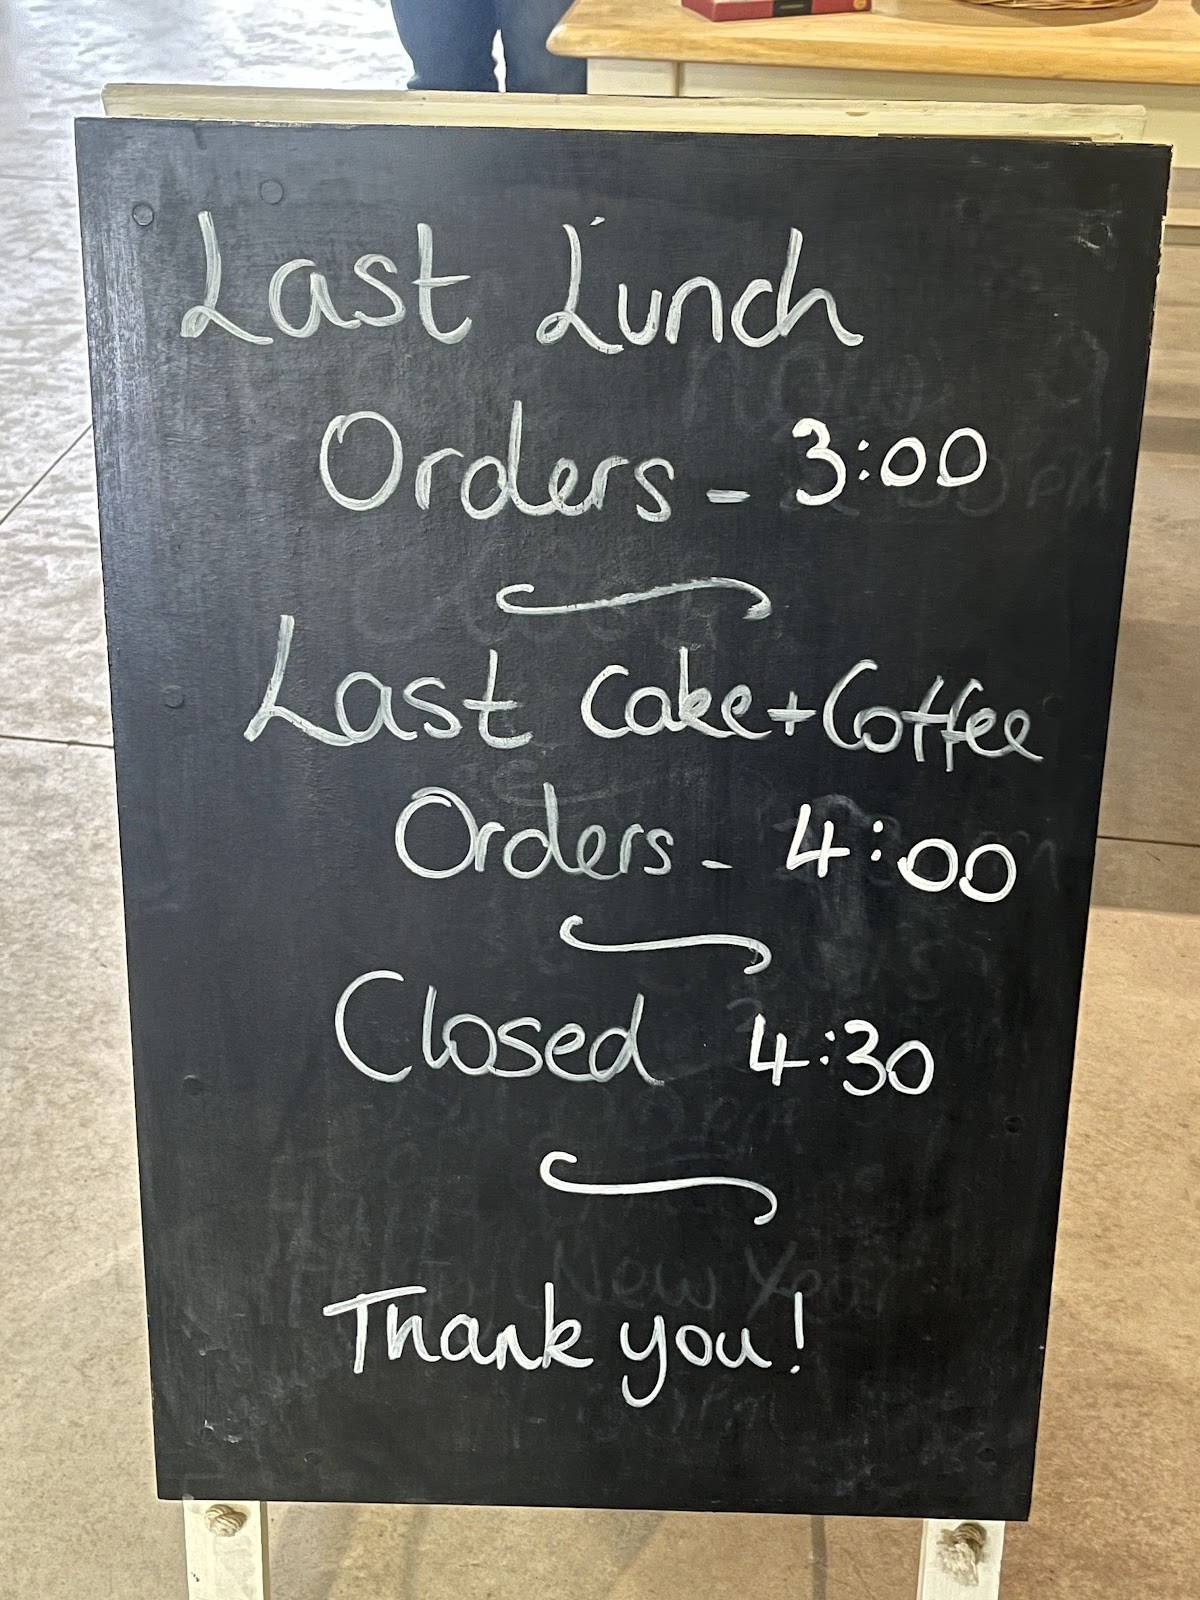 Last Lunch
Orders - 3:00
Last Cake + Coffee
Orders - 4:00
Closed 4:30
Thank you!